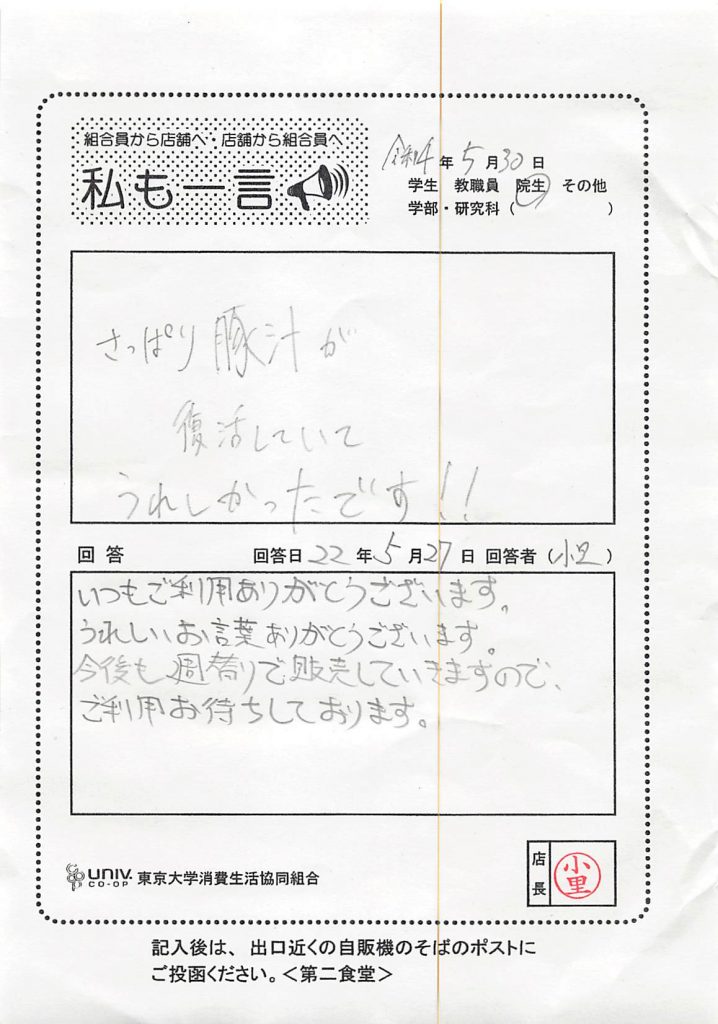 組合員から店舗へ・店舗から組合員へ
私も一言
令和4年5月30日
学生 教職員 院生 その他
学部・研究科( )
さっぱり豚汁が
復活していて
うれしかったです!!
回答 回答日22年5月27日 回答者(小里)
いつもご利用ありがとうございます。
うれしいお言葉ありがとうございます。
今後も週替りで販売していきますので、
ご利用お待ちしております。
UNIV. CO-OP 東京大学消費生活協同組合
店長 小里
記入後は、出口近くの自販機のそばのポストに
ご投函ください。<第二食堂>